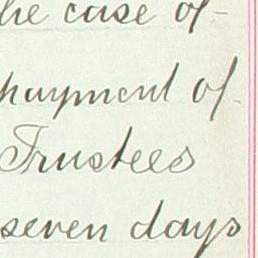 the case of
payment of
Trustees
seven days